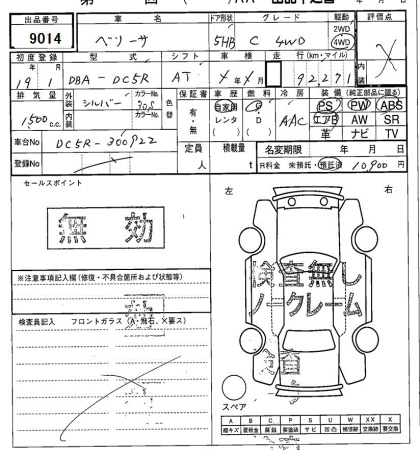 出品番号 車名 ドア形状 グレード 駆動 評価点
9014 ベリーサ 5HB C 4WD 2WD 4WD X
初度登録 型式 シフト 車検 走行(km・マイル) 内装
19年 1月 DBA-DC5R AT X年X月 92,271
排気量 外装 シルバー カラーNo. 色替 保証書 車歴 燃料 冷房 装備(純正部品に限る)
1500c.c. 内装 カラーNo. 有・無 自家用 レンタ G D AAC PS PW ABS
エアB AW SR
革 ナビ TV
車台No DC5R-300922
定員 人 積載量 t 名変期限 年 月 日
登録No R料金 未預託・預託済 10,900円
セールスポイント
無効
左 右
※注意事項記入欄(修復・不具合箇所および状態等)
検査無し
ノークレーム
検査員記入 フロントガラス(A・飛石、X要ス)
スペア
A B C P S U W XX X
線キズ 要板金 腐蝕 要塗装 サビ 凹凸 補修跡 交換跡 要交換